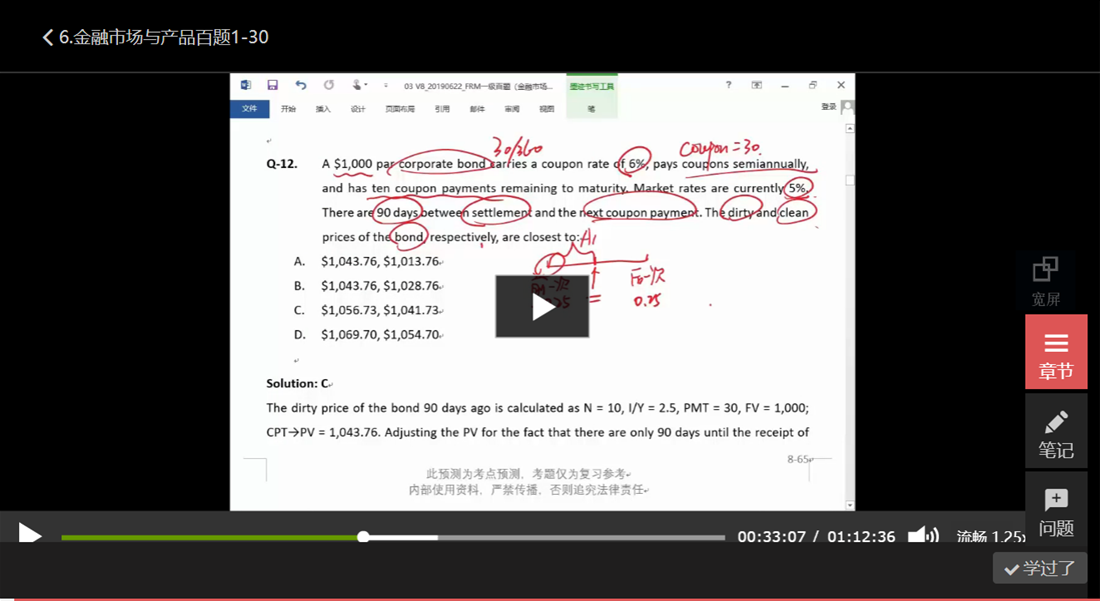 6.金融市场与产品百题1-30
03 V8_20190622_FRM一级百题（金融市场...
墨迹书写工具
?
文件 开始 插入 设计 页面布局 引用 邮件 审阅 视图 笔 登录
30/360
coupon=30.
Q-12. A $1,000 par corporate bond carries a coupon rate of 6%, pays coupons semiannually,
and has ten coupon payments remaining to maturity. Market rates are currently 5%.
There are 90 days between settlement and the next coupon payment. The dirty and clean
prices of the bond, respectively, are closest to:
AI
A. $1,043.76, $1,013.76
B. $1,043.76, $1,028.76
C. $1,056.73, $1,041.73
D. $1,069.70, $1,054.70
下一次
0.25
Solution: C
The dirty price of the bond 90 days ago is calculated as N = 10, I/Y = 2.5, PMT = 30, FV = 1,000;
CPT→PV = 1,043.76. Adjusting the PV for the fact that there are only 90 days until the receipt of
8-65
此预测为考点预测，考题仅为复习参考
内部使用资料，严禁传播，否则追究法律责任
宽屏
章节
笔记
问题
00:33:07 / 01:12:36
流畅 1.25x
学过了